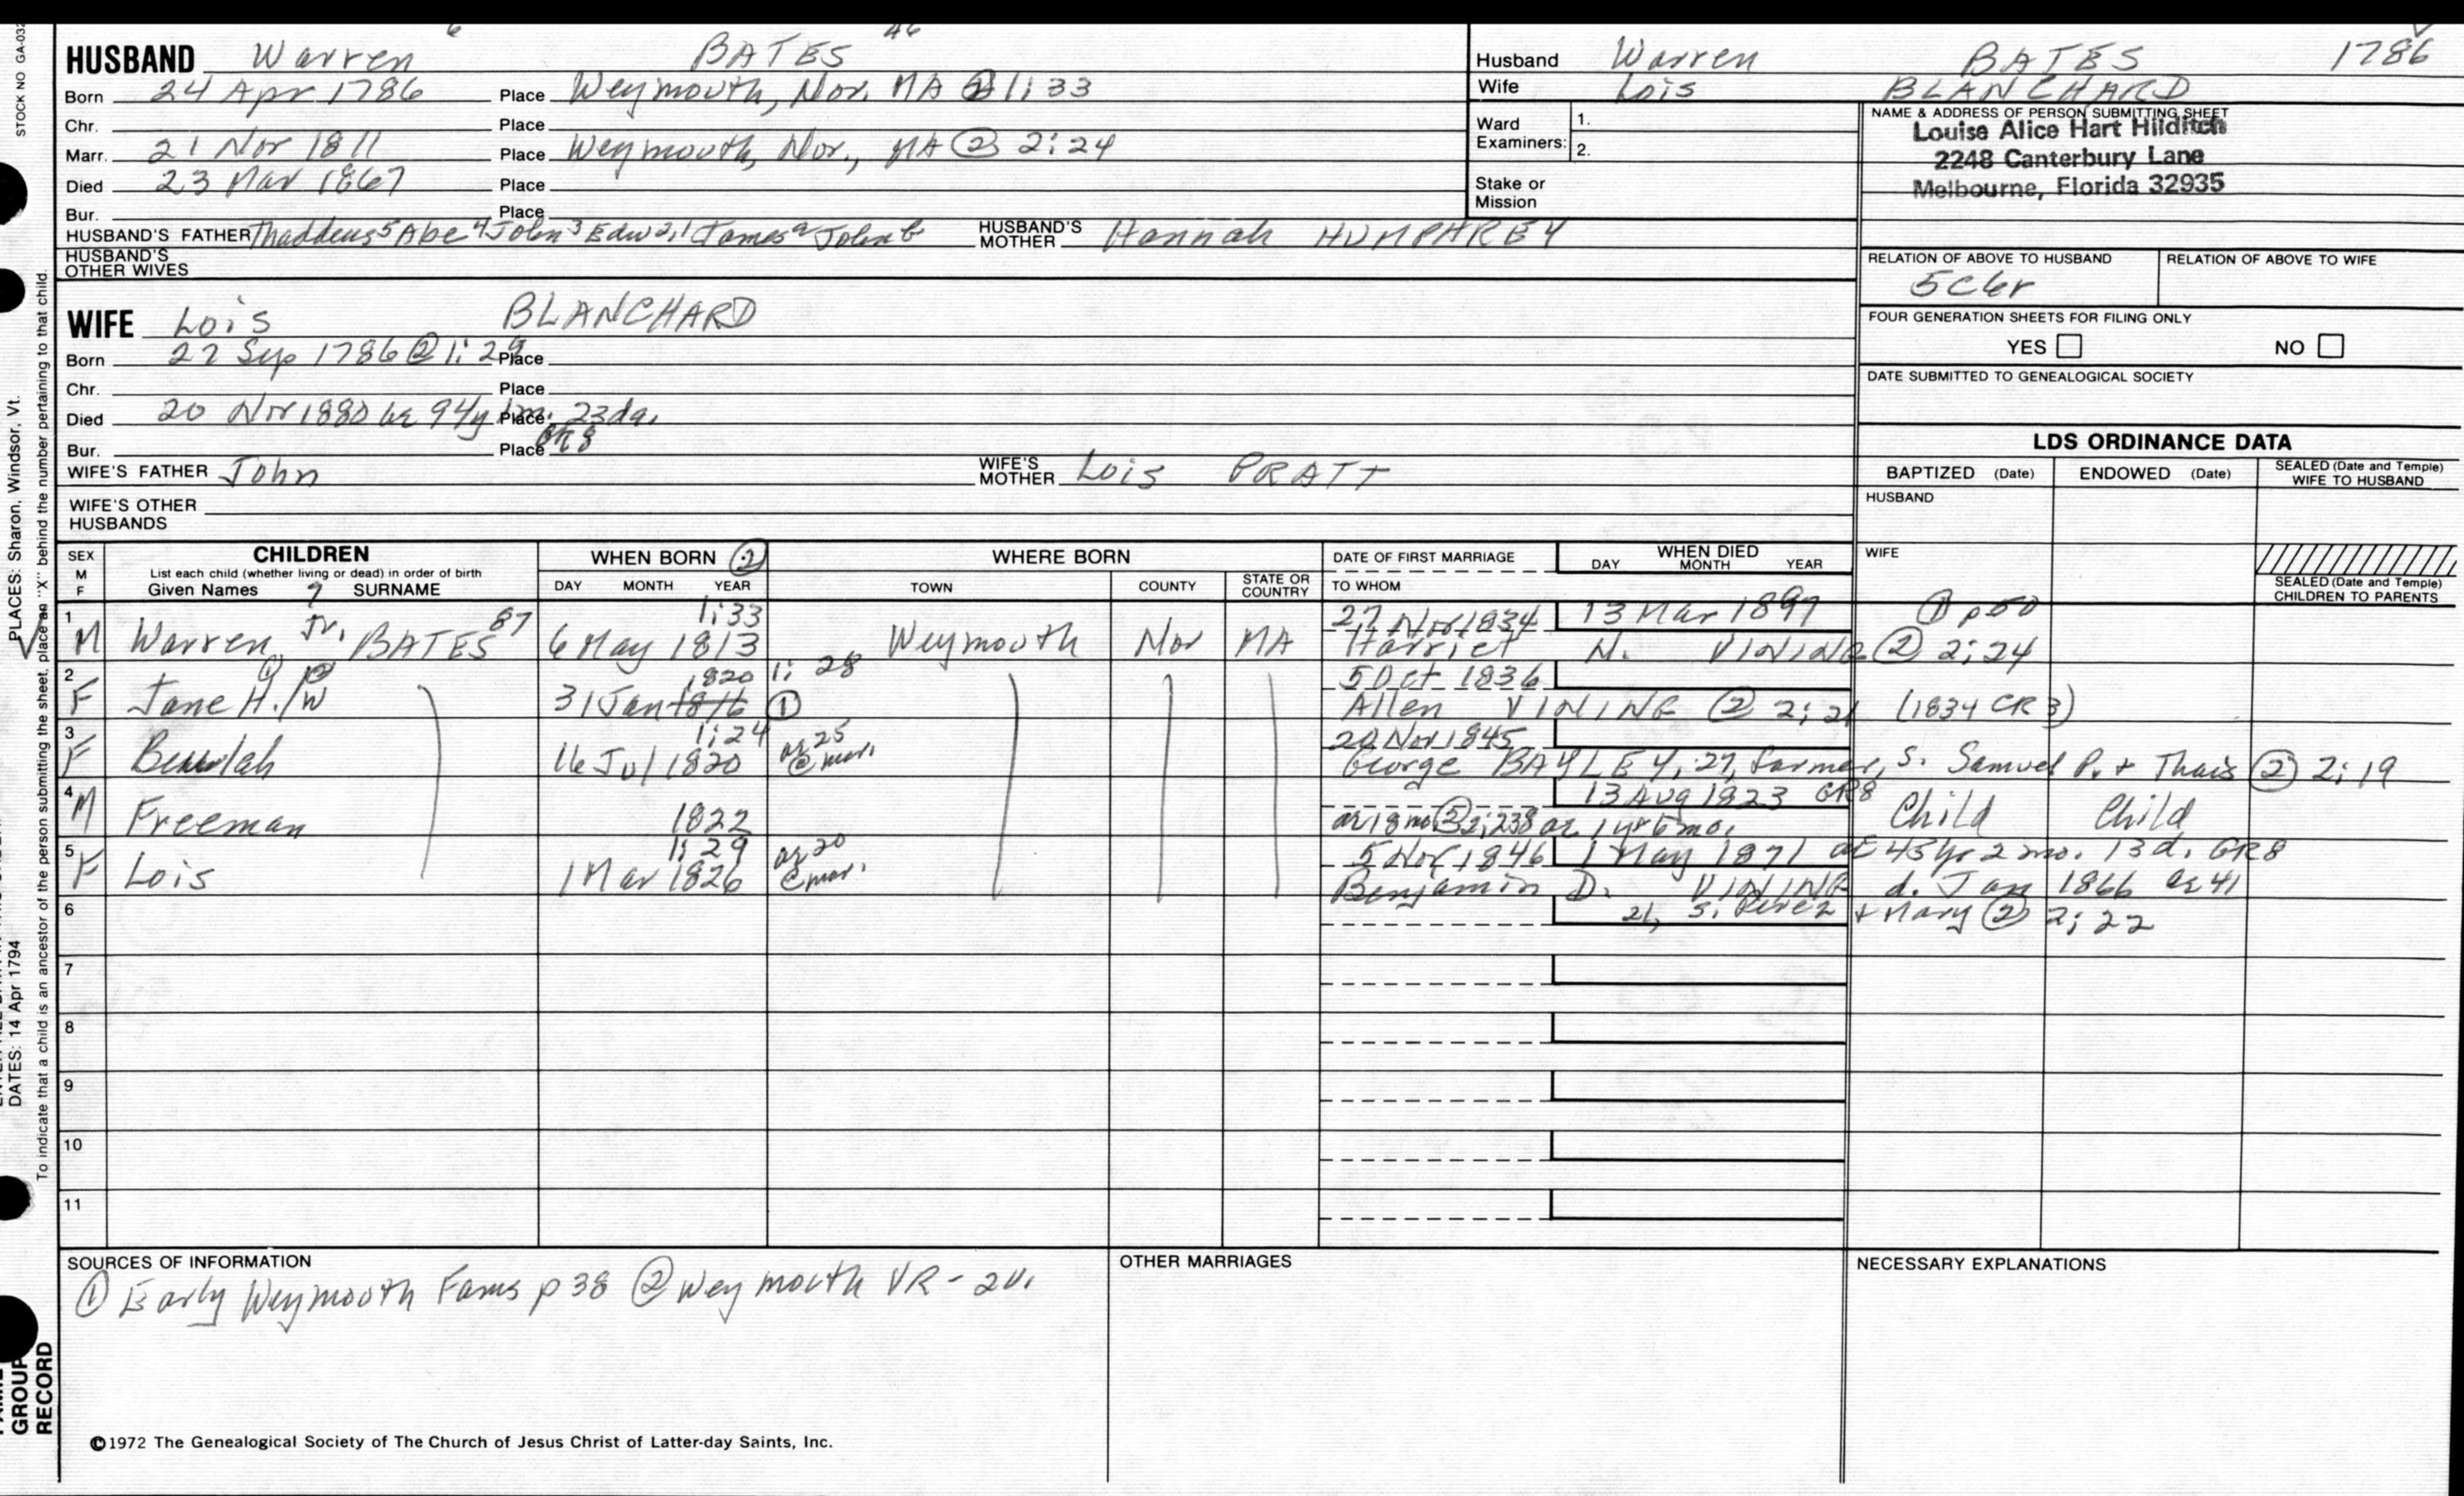 STOCK NO GA-032
HUSBAND Warren 6 BATES 46
Born 24 Apr 1786 Place Weymouth, Nor, MA ② 1:33
Chr. Place
Marr. 21 Nov 1811 Place Weymouth, Nor., MA ② 2:24
Died 23 Mar 1867 Place
Bur. Place
HUSBAND'S FATHER Thaddeus 5 Abe 4 John 3 Edw 2,1 James a John b HUSBAND'S MOTHER Hannah HUMPHREY
HUSBAND'S OTHER WIVES
Husband Warren BATES 1786
Wife Lois BLANCHARD
Ward Examiners: 1.
2.
Stake or Mission
NAME & ADDRESS OF PERSON SUBMITTING SHEET
Louise Alice Hart Hilditch
2248 Canterbury Lane
Melbourne, Florida 32935
RELATION OF ABOVE TO HUSBAND RELATION OF ABOVE TO WIFE
5C6r
FOUR GENERATION SHEETS FOR FILING ONLY
YES NO
DATE SUBMITTED TO GENEALOGICAL SOCIETY
WIFE Lois BLANCHARD
Born 27 Sep 1786 ② 1:29 Place
Chr. Place
Died 20 Nov 1880 ae 94y 1m. 23da. Place
Bur. Place GR8
WIFE'S FATHER John WIFE'S MOTHER Lois PRATT
WIFE'S OTHER HUSBANDS
LDS ORDINANCE DATA
BAPTIZED (Date) ENDOWED (Date) SEALED (Date and Temple) WIFE TO HUSBAND
HUSBAND
WIFE
SEALED (Date and Temple) CHILDREN TO PARENTS
SEX M F CHILDREN WHEN BORN ② WHERE BORN DATE OF FIRST MARRIAGE WHEN DIED
List each child (whether living or dead) in order of birth
Given Names 7 SURNAME DAY MONTH YEAR TOWN COUNTY STATE OR COUNTRY TO WHOM DAY MONTH YEAR
1 1:33 27 Nov 1834 13 Mar 1897 ① p50
M Warren Jr. BATES 87 6 May 1813 Weymouth Nor MA Harriet N. VINING ② 2:24
2 1820 1:28 5 Oct 1836
F Jane H./W 31 Jan 1816 ① Allen VINING ② 2:21 (1834 CR3)
3 1:24 ae 25 20 Nov 1845
F Beulah 16 Jul 1820 @ mar. George BAYLEY, 27, farmer, s. Samuel P. + Thais ② 2:19
4 13 Aug 1823 GR8
M Freeman 1822 ae 18 mo ② 2:238 ae 1yr 6mo. Child Child
5 1:29 ae 20 5 Nov 1846 1 May 1871 ae 43 yr 2 mo. 13 d. GR8
F Lois 1 Mar 1826 @ mar. Benjamin D. VINING d. Jan 1866 ae 41
6 21, s. Perez + Mary ② 2:22
7
8
9
10
11
SOURCES OF INFORMATION
① Early Weymouth Fams p 38 ② Weymouth VR - 2V.
OTHER MARRIAGES
NECESSARY EXPLANATIONS
©1972 The Genealogical Society of The Church of Jesus Christ of Latter-day Saints, Inc.
PLACES: Sharon, Windsor, Vt.
DATES: 14 Apr 1794
To indicate that a child is an ancestor of the person submitting the sheet, place an "X" behind the number pertaining to that child.
GROUP
RECORD